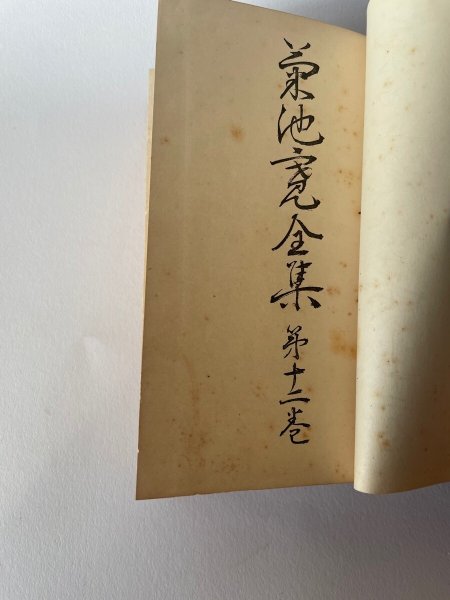 菊池寛全集 第十二巻